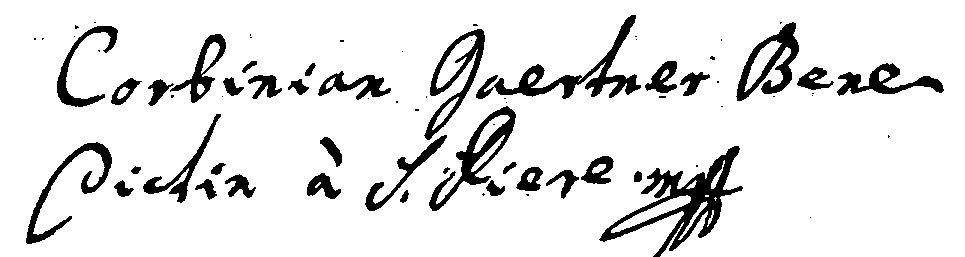 Corbinian Gaertner Bene-
dictin à S. Piere. mpp